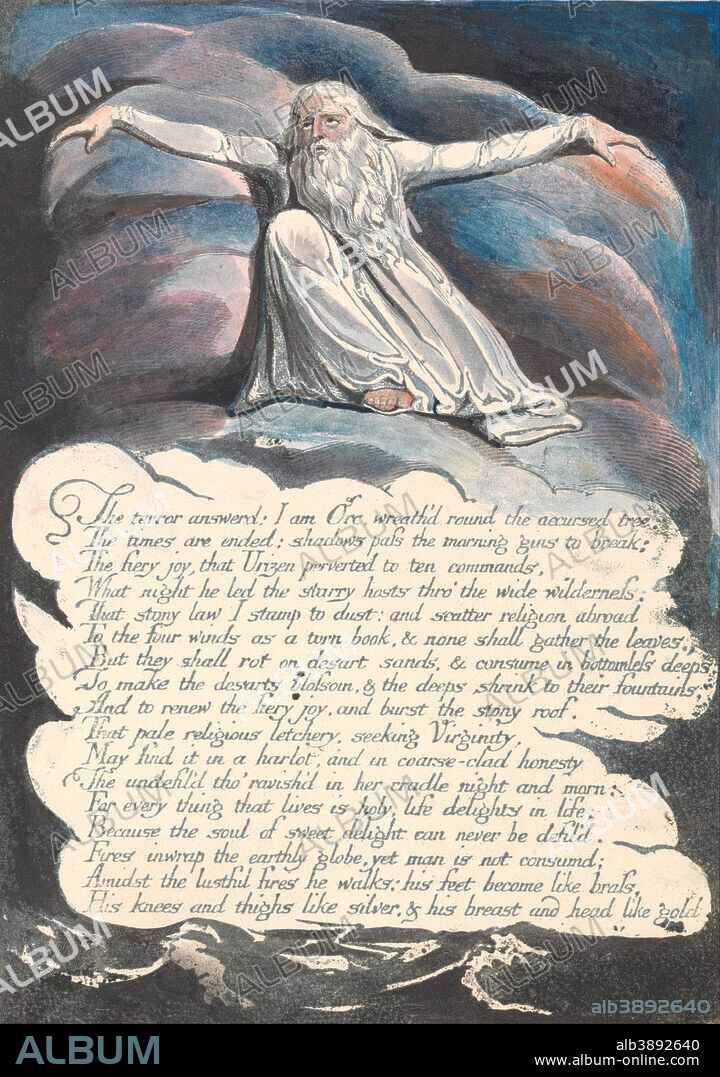 The terror answerd: I am Orc, wreath'd round the accursed tree:
The times are ended; shadows pass the morning gins to break;
The fiery joy, that Urizen perverted to ten commands,
What night he led the starry hosts thro' the wide wilderness:
That stony law I stamp to dust: and scatter religion abroad
To the four winds as a torn book, & none shall gather the leaves;
But they shall rot on desart sands, & consume in bottomless deeps;
To make the desarts blossom, & the deeps shrink to their fountains,
And to renew the fiery joy, and burst the stony roof.
That pale religious letchery, seeking Virginity,
May find it in a harlot, and in coarse-clad honesty
The undefil'd tho' ravish'd in her cradle night and morn:
For every thing that lives is holy, life delights in life;
Because the soul of sweet delight can never be defil'd.
Fires inwrap the earthly globe, yet man is not consumd;
Amidst the lustful fires he walks: his feet become like brass,
His knees and thighs like silver, & his breast and head like gold.
alb3892640
ALBUM
alb3892640
www.album-online.com